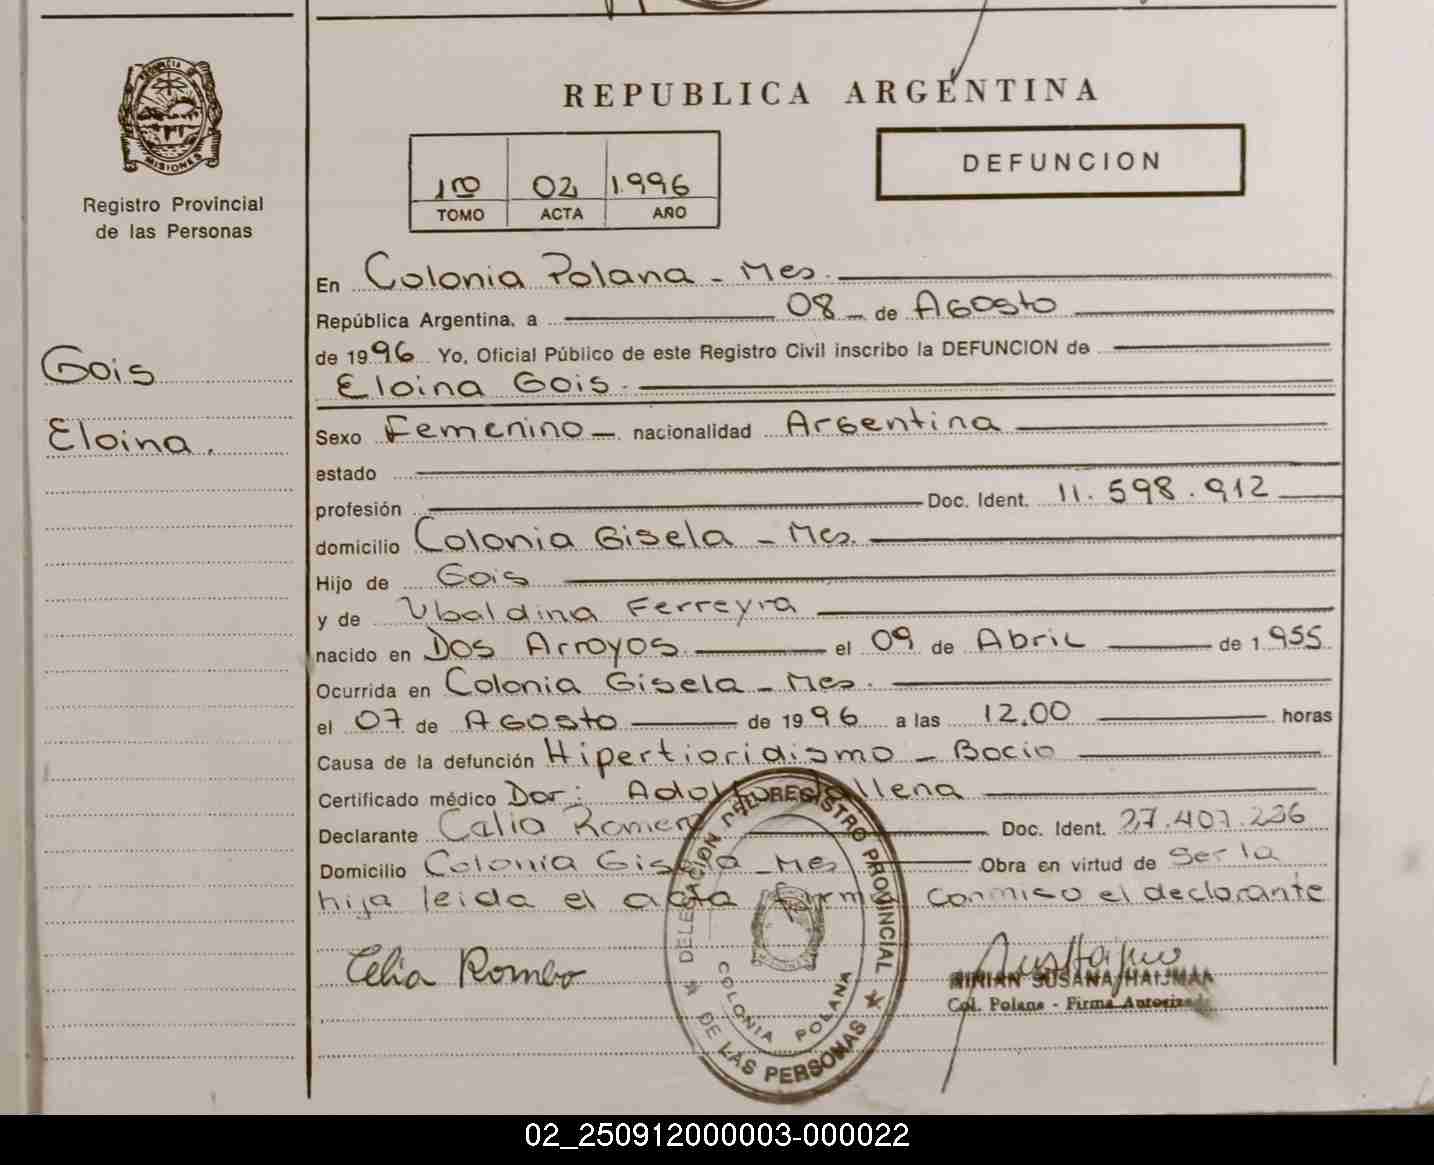 PROVINCIA DE
MISIONES
Registro Provincial
de las Personas
Gois
Eloina.
REPUBLICA ARGENTINA
1ro 02 1.996
TOMO ACTA AÑO
DEFUNCION
En Colonia Polana - Mes.
República Argentina, a 08 - de Agosto
de 1996 Yo, Oficial Público de este Registro Civil inscribo la DEFUNCION de
Eloina Gois.
Sexo Femenino - nacionalidad Argentina
estado
profesión Doc. Ident. 11.598.912
domicilio Colonia Gisela - Mes.
Hijo de Gois
y de Ubaldina Ferreyra
nacido en Dos Arroyos el 09 de Abril de 1955
Ocurrida en Colonia Gisela - Mes.
el 07 de Agosto de 1996 a las 12,00 horas
Causa de la defunción Hipertioridismo - Bocio
Certificado médico Dor: Adolfo
Declarante Calia Romero Doc. Ident. 27.407.226
Domicilio Colonia Gisela - Mes Obra en virtud de ser la
hija leida el acta firma conmiso el declarante
Celia Romeo
DELEGACION DEL REGISTRO PROVINCIAL
DE LAS PERSONAS
COLONIA POLANA
MIRIAN SUSANA HAIJMAN
Col. Polana - Firma Autorizada
02_250912000003-000022